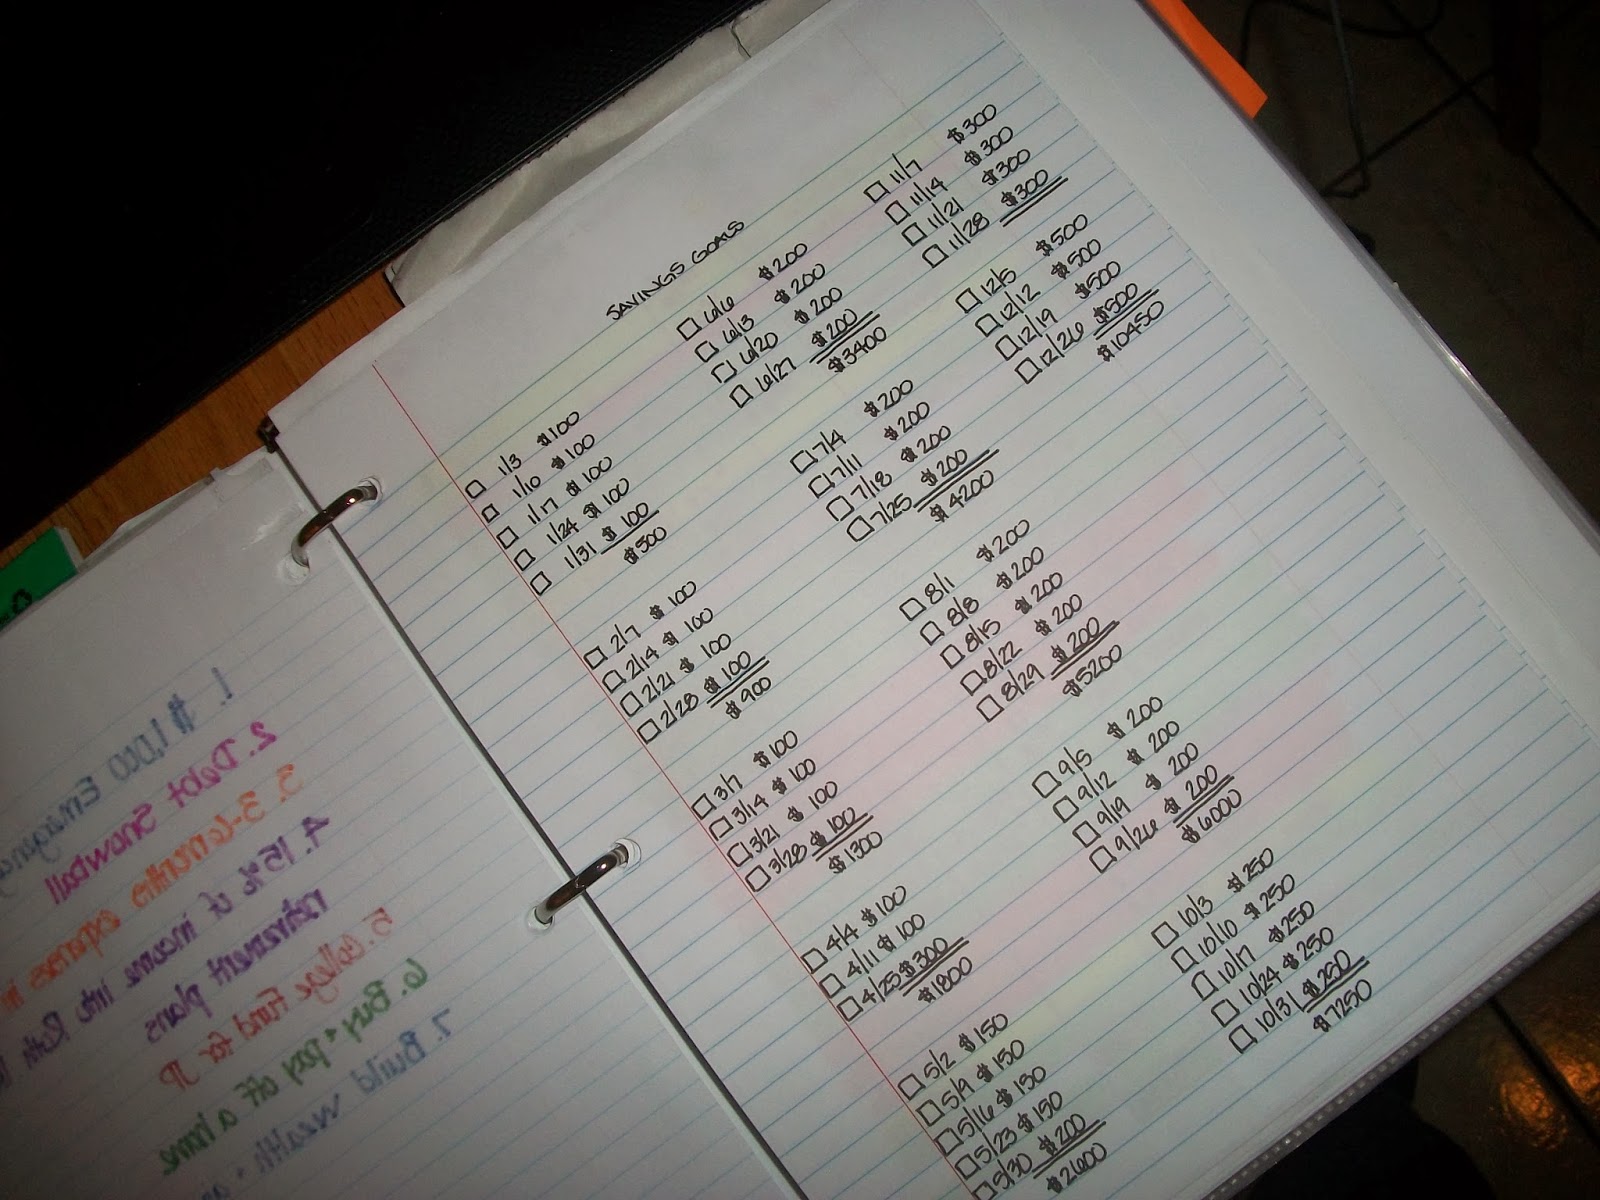 SAVINGS GOALS
1/3 $100
1/10 $100
1/17 $100
1/24 $100
1/31 $100
$500
2/7 $100
2/14 $100
2/21 $100
2/28 $100
$900
3/7 $100
3/14 $100
3/21 $100
3/28 $100
$1300
4/4 $100
4/11 $100
4/25 $300
$1800
5/2 $150
5/9 $150
5/16 $150
5/23 $150
5/30 $200
$2600
6/6 $200
6/13 $200
6/20 $200
6/27 $200
$3400
7/4 $200
7/11 $200
7/18 $200
7/25 $200
$4200
8/1 $200
8/8 $200
8/15 $200
8/22 $200
8/29 $200
$5200
9/5 $200
9/12 $200
9/19 $200
9/26 $200
$6000
10/3 $250
10/10 $250
10/17 $250
10/24 $250
10/31 $250
$7250
11/7 $300
11/14 $300
11/21 $300
11/28 $300
12/5 $500
12/12 $500
12/19 $500
12/26 $500
$10450
1. $1,000
2. Debt Snowball
3. 3-6 months expenses in
4. 15% of income into Roth
retirement plans
5. College Fund for JP
6. Buy & pay off a home
7. Build wealth